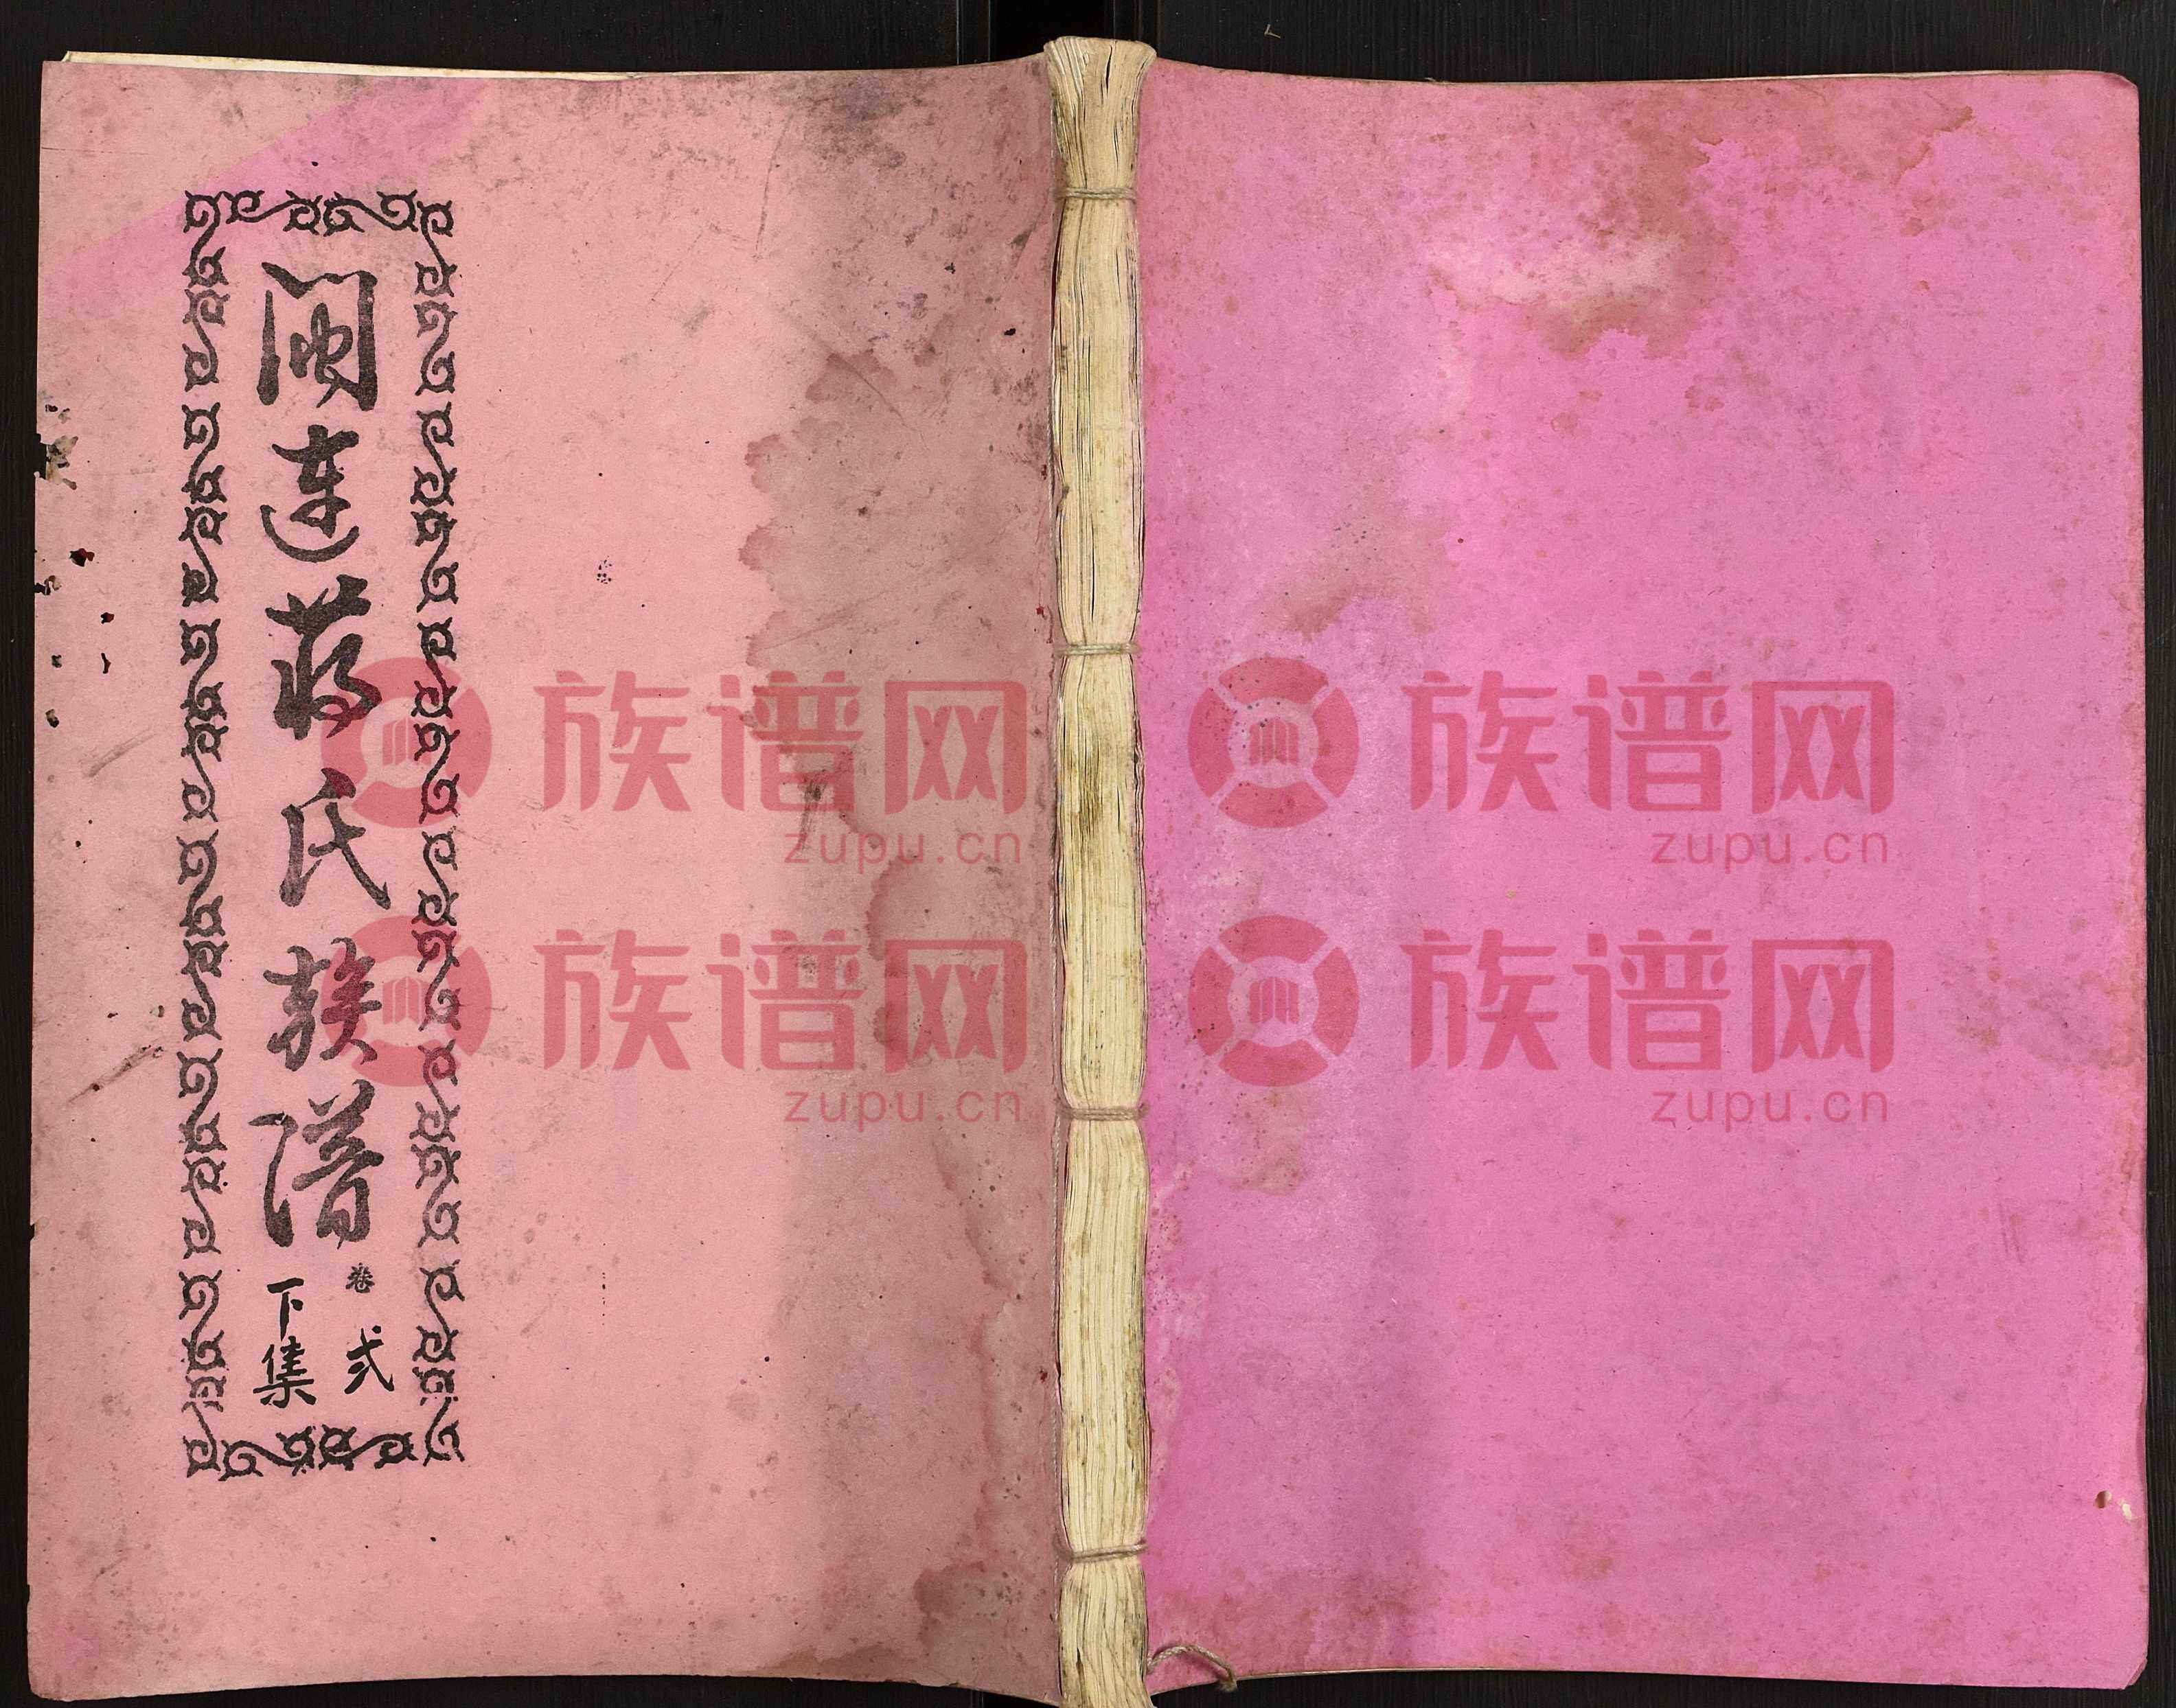 闽连蒋氏族谱
卷弍
下集
族谱网
zupu.cn
族谱网
zupu.cn
族谱网
zupu.cn
族谱网
zupu.cn